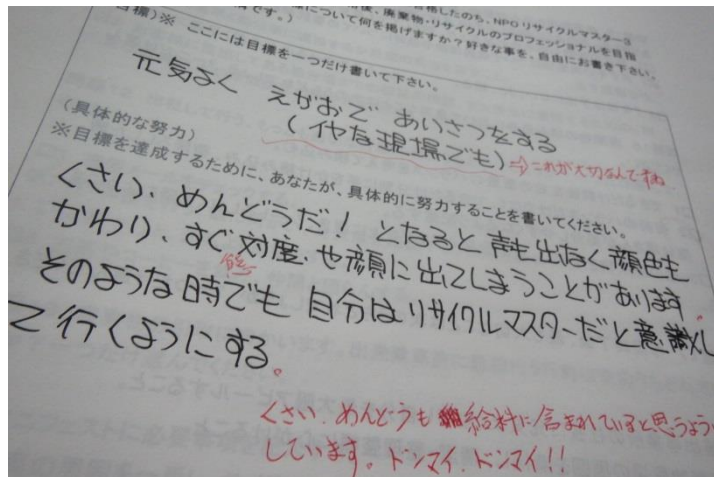 格したのち、NPOリサイクルマスター3
廃棄物・リサイクルのプロフェッショナルを目指
について何を掲げますか？好きな事を、自由にお書き下さい。
です。）
目標）※ ここには目標を一つだけ書いて下さい。
元気よく えがおで あいさつをする
（イヤな現場でも）⇒これが大切なんですね
（具体的な努力）
※目標を達成するために、あなたが、具体的に努力することを書いてください。
くさい、めんどうだ！ となると 声も出なく顔色も
かわり、すぐ対度、や顔に出てしまうことがあります。
態
そのような時でも 自分はリサイクルマスターだと意識し
て行くようにする。
くさい、めんどうも給料に含まれていると思うよう
しています。ドンマイ、ドンマイ!!